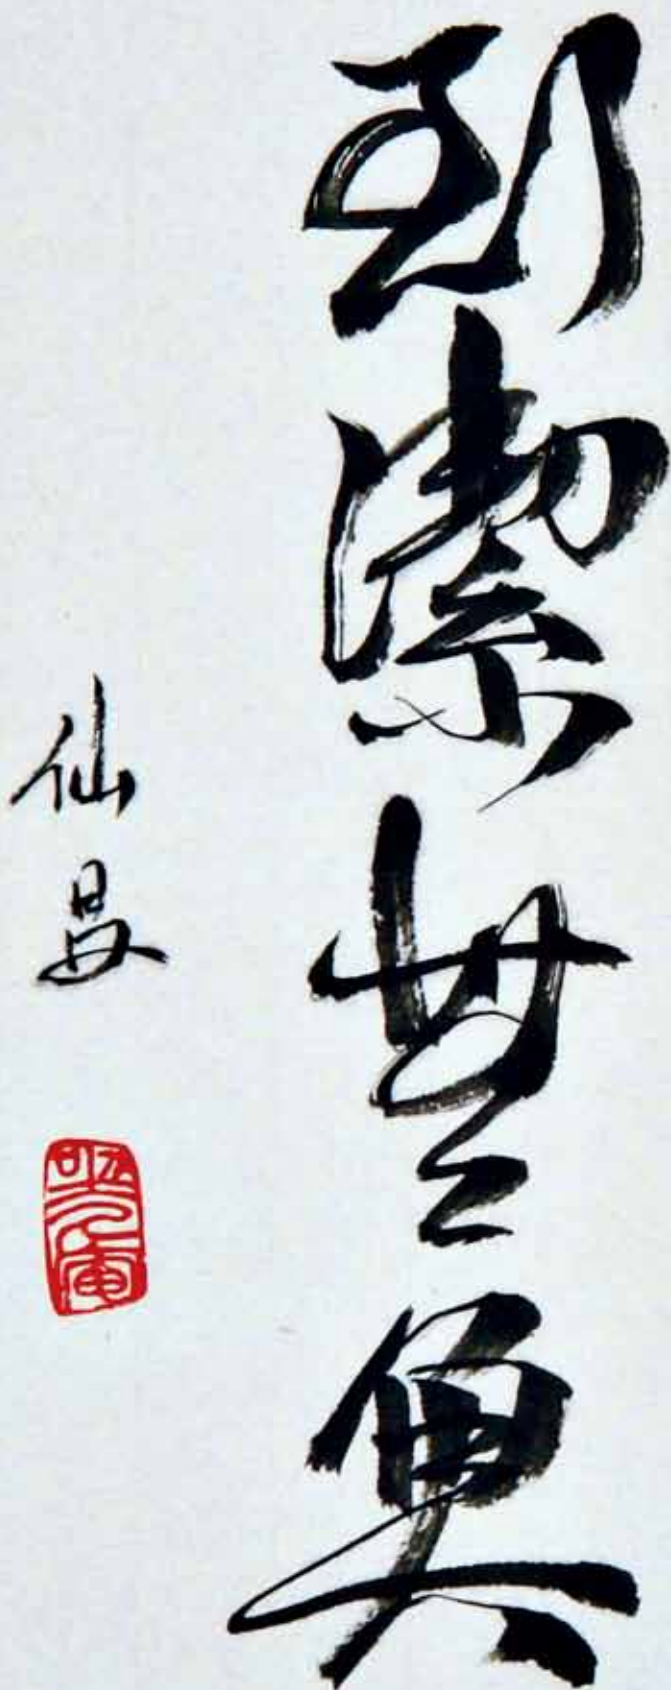 到潔無魚
仙旻